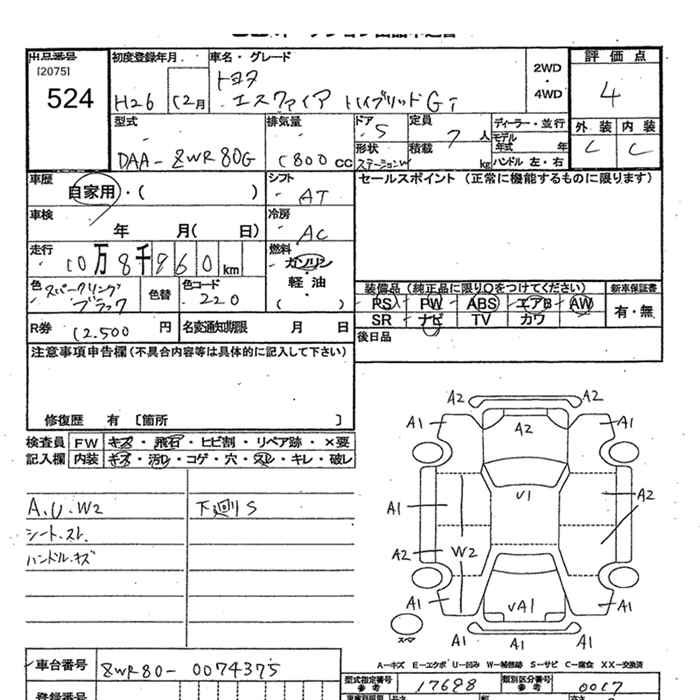 出品番号
[2075]
524
初度登録年月
H26 12月
車名・グレード
トヨタ
エスクァイア ハイブリッドGi
2WD
・
4WD
評価点
4
外装 内装
C C
型式
DAA-ZWR80G
排気量
1800 CC
ドア
5
定員
7 人
形状
ステーションW
積載
kg
ディーラー・並行
モデル
年式 年
ハンドル 左・右
車歴
自家用・( )
シフト
AT
セールスポイント (正常に機能するものに限ります)
車検
年 月( 日)
冷房
AC
走行
10万8千960km
燃料
ガソリン
軽油
( )
色
スパークリング
ブラック
色替
色コード
220
装備品(純正品に限り○をつけてください)
新車保証書
PS PW ABS エアB AW
SR ナビ TV カワ
有・無
R券
12,500 円
名変通知期限 月 日
後日品
注意事項申告欄(不具合内容等は具体的に記入して下さい)
修復歴 有 〔箇所 〕
検査員
記入欄
FW キズ・飛石・ヒビ割・リペア跡・×要
内装 キズ・汚れ・コゲ・穴・スレ・キレ・破レ
A.U.W2
シート.スレ
ハンドル.キズ
下廻りS
A2 A2
A1 A2 A1
A1 U1 A2
A2 W2
A1 UA1 A1
スペア
A1 A1 A1
A-キズ E-エクボ U-凹み W-補修跡 S-サビ C-腐食 XX-交換済
車台番号
ZWR80-0074375
型式指定番号
参考
17698
類別区分番号
参考
0017
登録番号